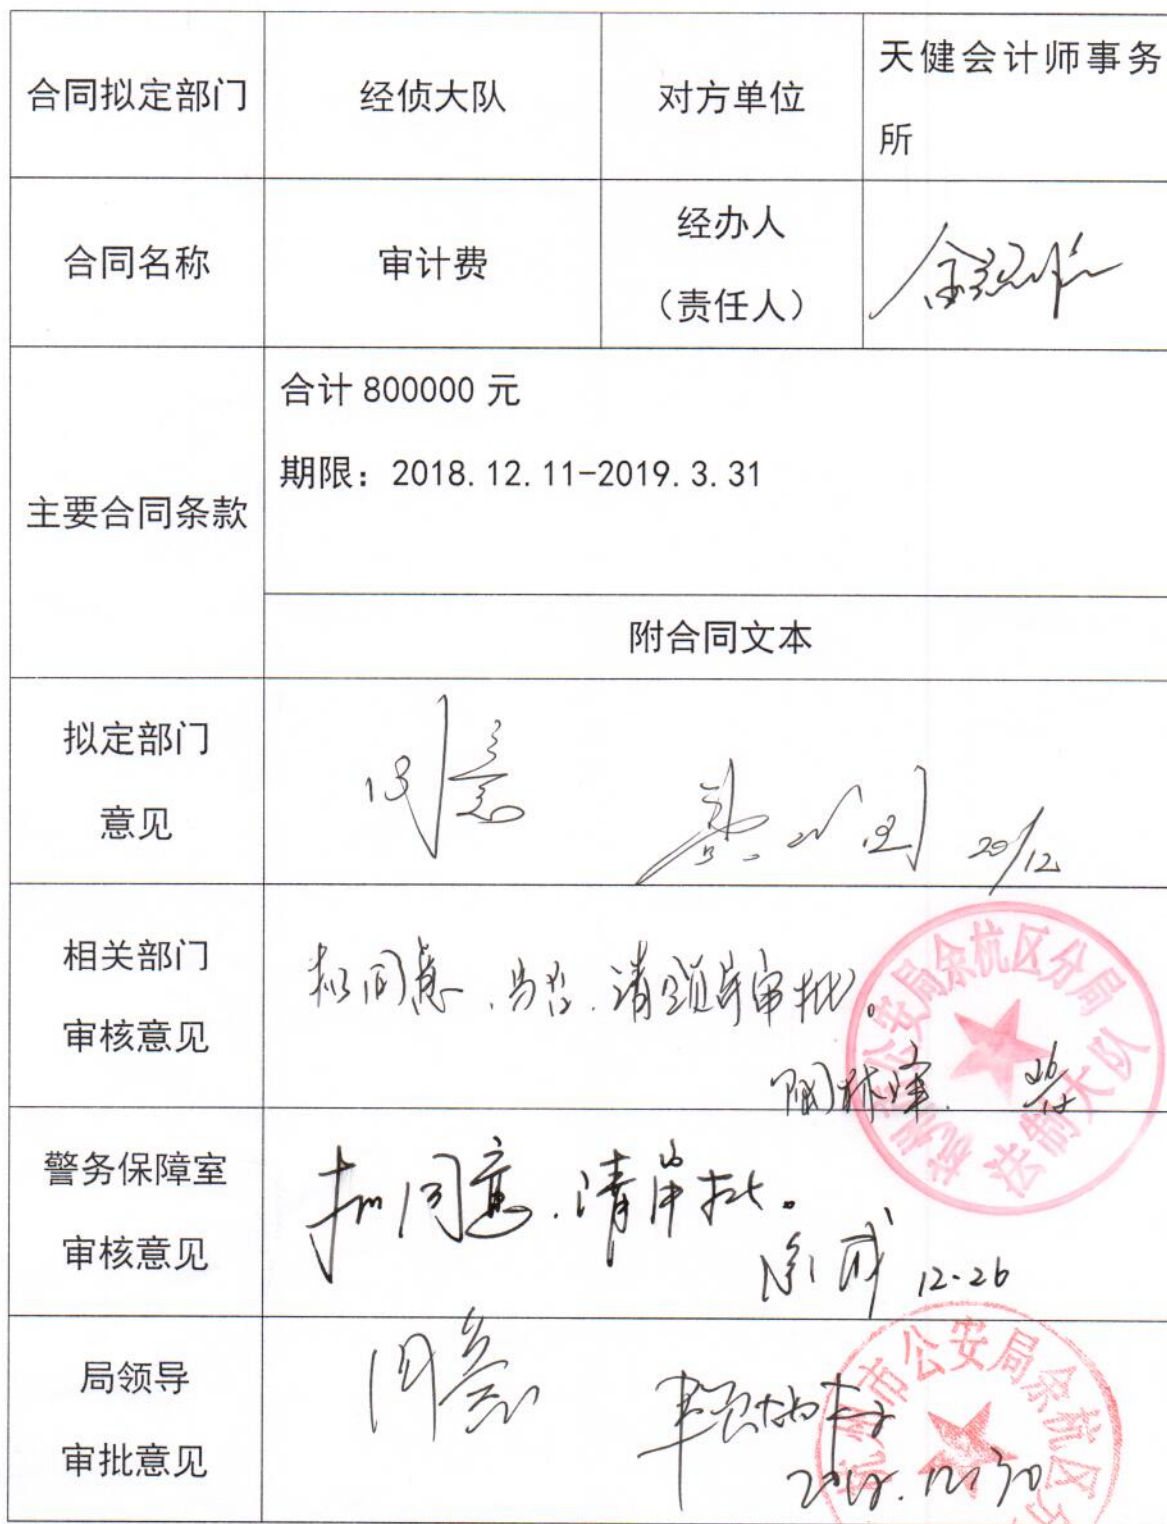 合同拟定部门
经侦大队
对方单位
天健会计师事务
所
合同名称
审计费
经办人
（责任人）
主要合同条款
合计 800000 元
期限：2018.12.11-2019.3.31
附合同文本
拟定部门
意见
同意
20/12
相关部门
审核意见
拟同意
请领导审批。
公安局余杭区分局
法制大队
警务保障室
审核意见
拟同意.请审批。
12-26
局领导
审批意见
同意
2018.12.30
杭州市公安局余杭区